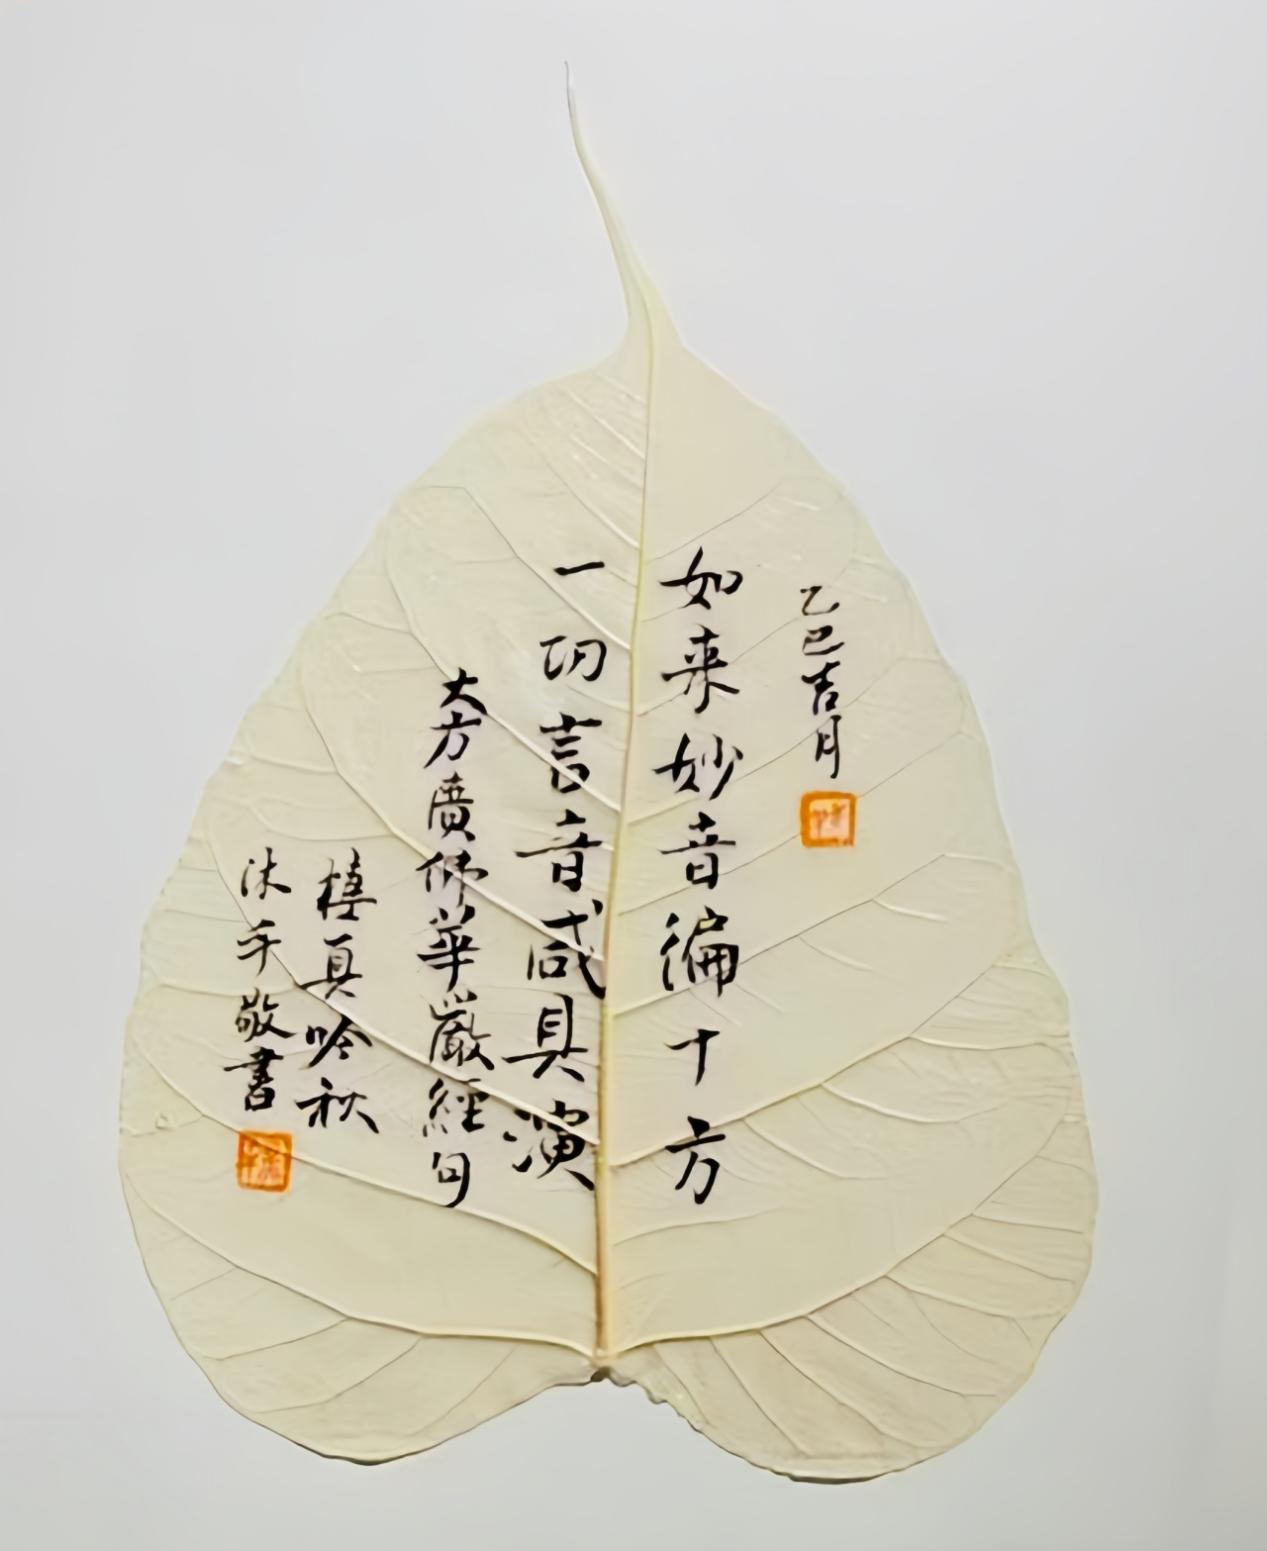 乙巳吉月
如来妙音徧十方
一切言音咸具演
大方廣佛華嚴經句
真吟秋
沐手敬書